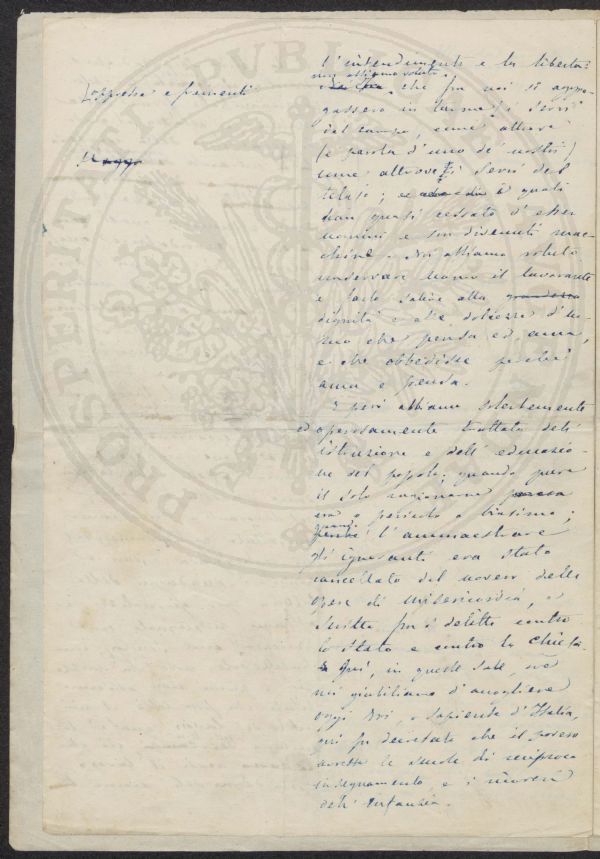 PROSPERITATI PVBLICAE
oppressi e frementi
l'intendimento e la libertà:
non abbiamo voluto
che fra noi si aggio-
gassero in turme i servi
del campo, come altrove
(e parola d'uno de' nostri)
come altrove i servi del
telajo; i quali
han quasi cessato d'esser
uomini e son divenuti mac-
chine. Noi abbiamo voluto
conservare uomo il lavorante
e farlo salire alla grandezza
dignità e alle dolcezze d'uo-
mo che pensa ed ama,
e che obbedisce perchè
ama e pensa.
E però abbiamo
ed operosamente trattato dell'
istruzione e dell' educazio-
ne del popolo; quando pure
il solo ragionarne
era o pericolo o biasimo;
quando l'ammaestrare
gl'ignoranti era stato
cancellato dal novero delle
opere di misericordia, e
scritto fra i delitti contro
lo Stato e contro la Chiesa.
E Quì, in queste sale, ove
noi giubiliamo d'accogliere
oggi Voi, o Sapienti d'Italia,
quì fu decretato che il povero
avesse le scuole di reciproco
insegnamento, e i ricoveri
dell' infanzia.